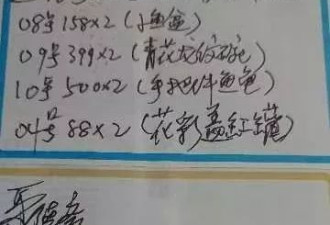 08号 158×2 (小鱼缸)
09号 399×2 (青花龙纹碗)
10号 500×2 (手把件鱼龟)
04号 88×2 (花彩盖缸罐)